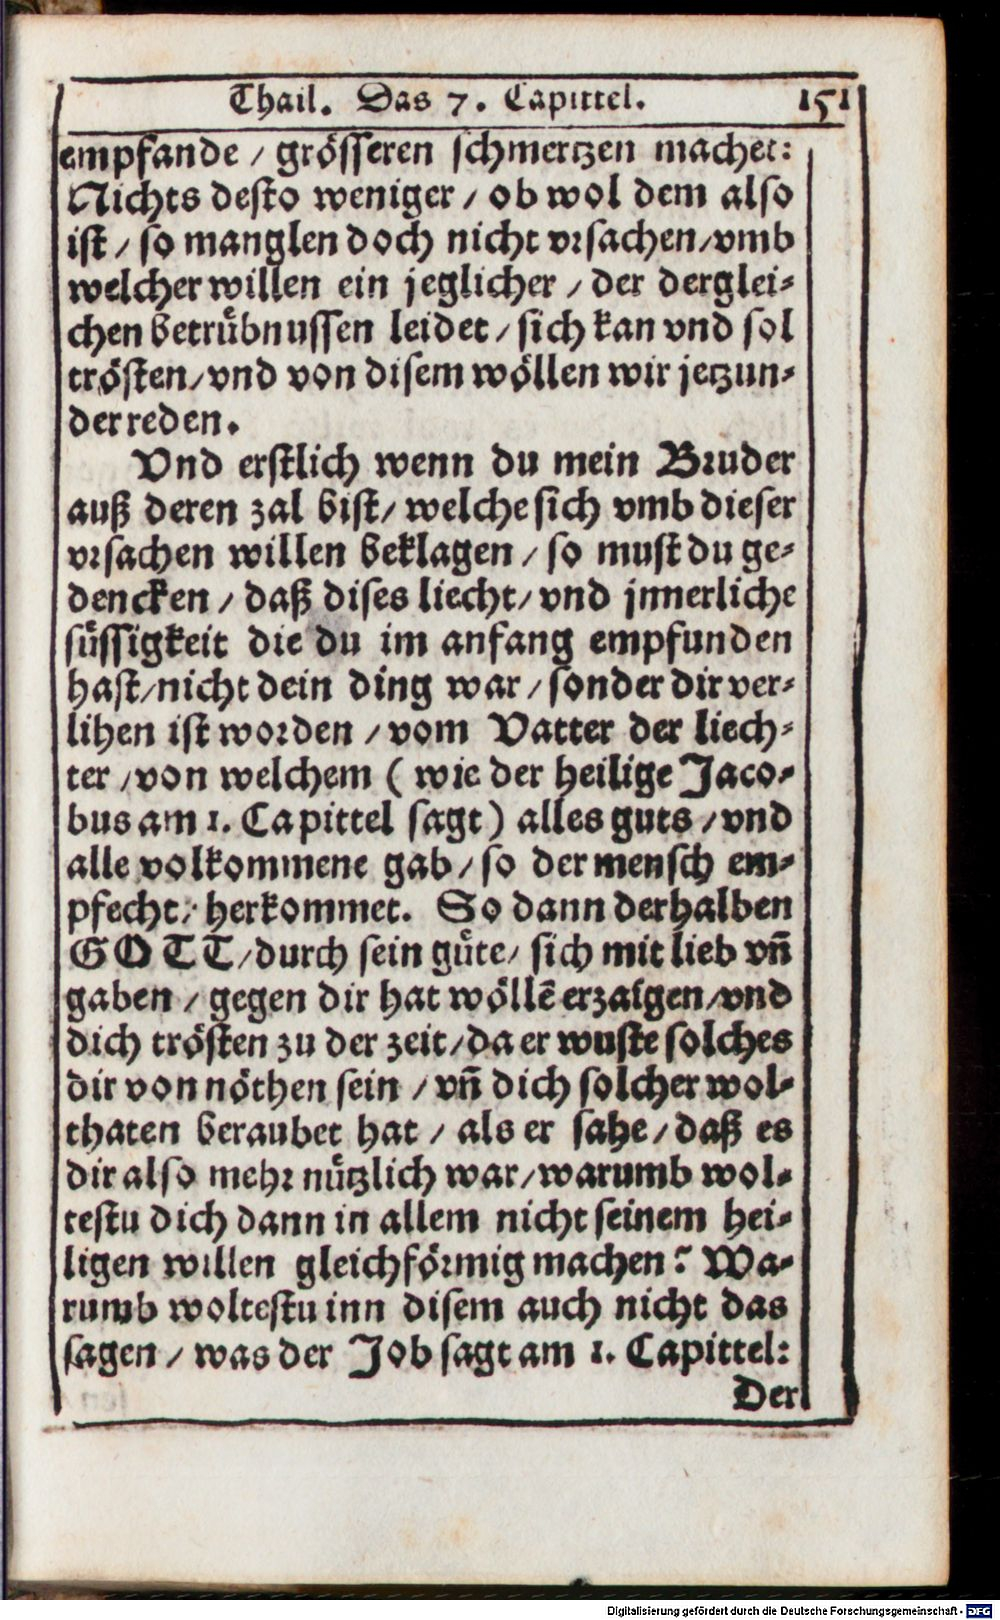 Thail. Das 7. Capittel. 151
empfande / grösseren schmertzen machet:
Nichts desto weniger / ob wol dem also
ist / so manglen doch nicht vrsachen / vmb
welcher willen ein jeglicher / der derglei-
chen betrübnussen leidet / sich kan vnd sol
trösten / vnd von disem wöllen wir jetzun-
der reden.
Vnd erstlich wenn du mein Bruder
auß deren zal bist / welche sich vmb dieser
vrsachen willen beklagen / so must du ge-
dencken / daß dises liecht / vnd jnnerliche
süssigkeit die du im anfang empfunden
hast / nicht dein ding war / sonder dir ver-
lihen ist worden / vom Vatter der liech-
ter / von welchem ( wie der heilige Jaco-
bus am 1. Capittel sagt ) alles guts / vnd
alle volkommene gab / so der mensch em-
pfecht / herkommet. So dann derhalben
GOTT / durch sein güte / sich mit lieb vñ
gaben / gegen dir hat wöllẽ erzaigen / vnd
dich trösten zu der zeit / da er wuste solches
dir von nöthen sein / vñ dich solcher wol-
thaten beraubet hat / als er sahe / daß es
dir also mehr nützlich war / warumb wol-
testu dich dann in allem nicht seinem hei-
ligen willen gleichförmig machen? Wa-
rumb woltestu inn disem auch nicht das
sagen / was der Job sagt am 1. Capittel:
Der
Digitalisierung gefördert durch die Deutsche Forschungsgemeinschaft - DFG